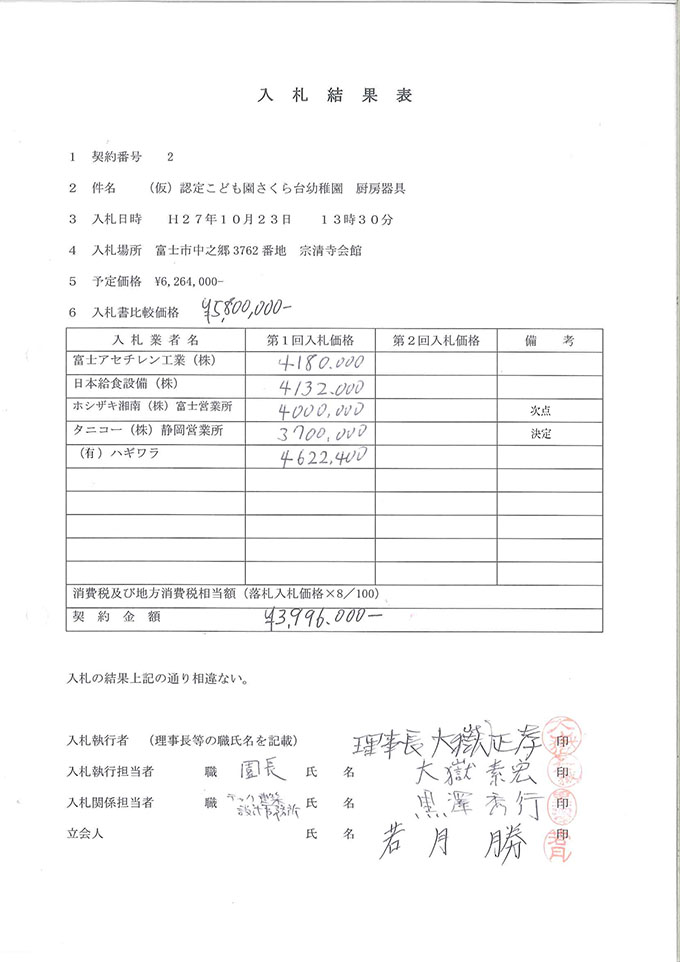 入札結果表
1 契約番号 2
2 件名 （仮）認定こども園さくら台幼稚園 厨房器具
3 入札日時 H27年10月23日 13時30分
4 入札場所 富士市中之郷3762番地 宗清寺会館
5 予定価格 ¥6,264,000-
6 入札書比較価格 ¥5,800,000-
入札業者名 第1回入札価格 第2回入札価格 備考
富士アセチレン工業（株） 4180.000
日本給食設備（株） 4132.000
ホシザキ湘南（株）富士営業所 4000,000 次点
タニコー（株）静岡営業所 3700,000 決定
（有）ハギワラ 4622,400
消費税及び地方消費税相当額（落札入札価格×8／100）
契約金額 ¥3,996.000-
入札の結果上記の通り相違ない。
入札執行者 （理事長等の職氏名を記載） 理事長 大嶽正孝 印
入札執行担当者 職 園長 氏名 大嶽素宏 印
入札関係担当者 職 設計事務所 氏名 黒澤秀行 印
立会人 氏名 若月勝 印